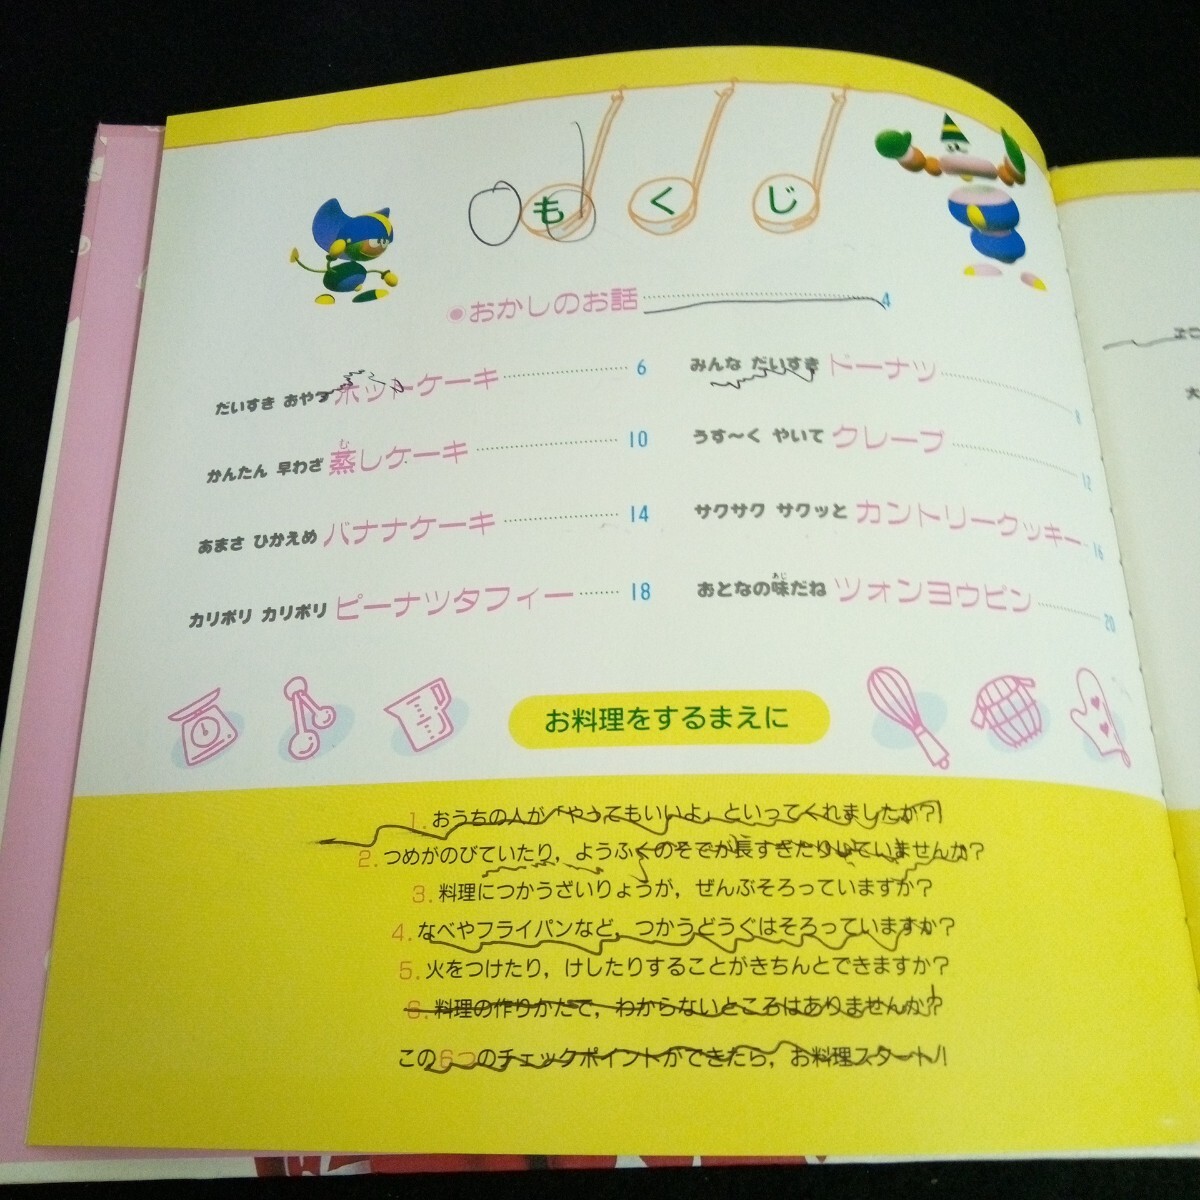 もくじ
●おかしのお話 4
だいすき おやつ ホットケーキ 6
かんたん 早わざ 蒸しケーキ 10
む
あまさ ひかえめ バナナケーキ 14
カリポリ カリポリ ピーナツタフィー 18
みんな だいすき ドーナツ 8
うす〜く やいて クレープ 12
サクサク サクッと カントリークッキー 16
おとなの味だね ツォンヨウビン 20
あじ
お料理をするまえに
1. おうちの人が「やってもいいよ」といってくれましたか？
2. つめがのびていたり，ようふくのそでが長すぎたりしていませんか？
3. 料理につかうざいりょうが，ぜんぶそろっていますか？
4. なべやフライパンなど，つかうどうぐはそろっていますか？
5. 火をつけたり，けしたりすることがきちんとできますか？
6. 料理の作りかたで，わからないところはありませんか？
この6つのチェックポイントができたら，お料理スタート！
大